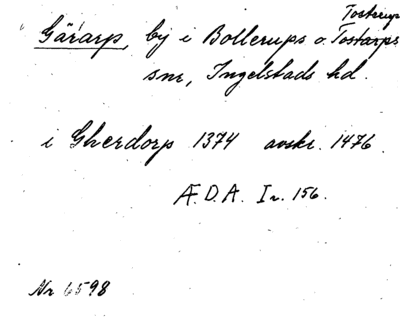 Tosterup
Gärarp, by i Bollerups o. Tostarps
snr, Ingelstads hd.
i Gherdorp 1374 avskr. 1476
Æ.D.A. I r. 156.
Nr 6598